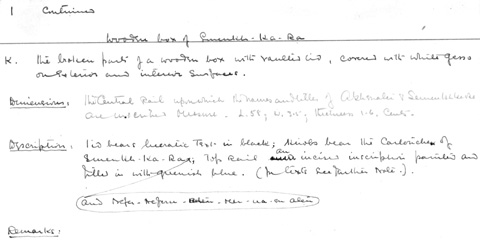 1 Continued
Wooden box of Smenkh-Ka-Ra
K. The broken parts of a wooden box with vaulted lid, covered with white gesso
on exterior and interior surfaces.
Dimensions: The Central Rail upon which the names and titles of Akhenaten & Smenkhkare
are inscribed measure. L. 58; W. thickness Cents.
Description: Lid bears hieratic Text in black; Knobs bear the Cartouches of
Smenkh-Ka-Ra; Top Rail an incised inscription painted and
filled in with greenish blue. (For texts see further Note.)
and Nefer-Neferu- Mer-
Remarks: